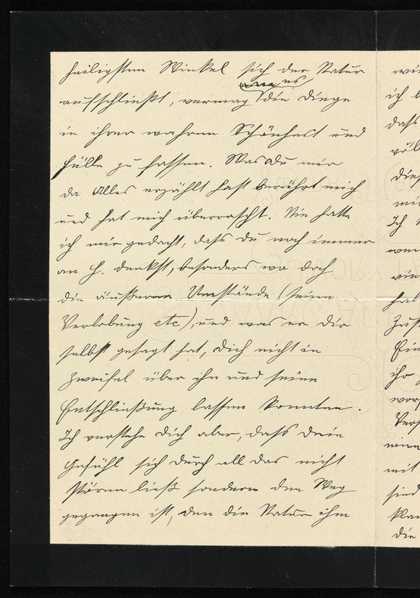 heiligstem Winkel sich der Natur
aufschließt, vermag es die Dinge
in ihrer wahren Schönheit und
Fülle zu fassen. Was Du mir
da Alles erzählt hast berührt mich
und hat mich überrascht. Nie hatte
ich mir gedacht, daß du noch immer
an H. denkst, besonders wo doch
die äußeren Umstände (seine
Verlobung etc), und was er dir
selbst gesagt hat, dich nicht in
Zweifel über ihn und seine
Entschließung lassen konnten.
Ich verstehe dich aber, daß dein
Gefühl sich durch all das nicht
stören ließ sondern den Weg
gegangen ist, den die Natur ihm